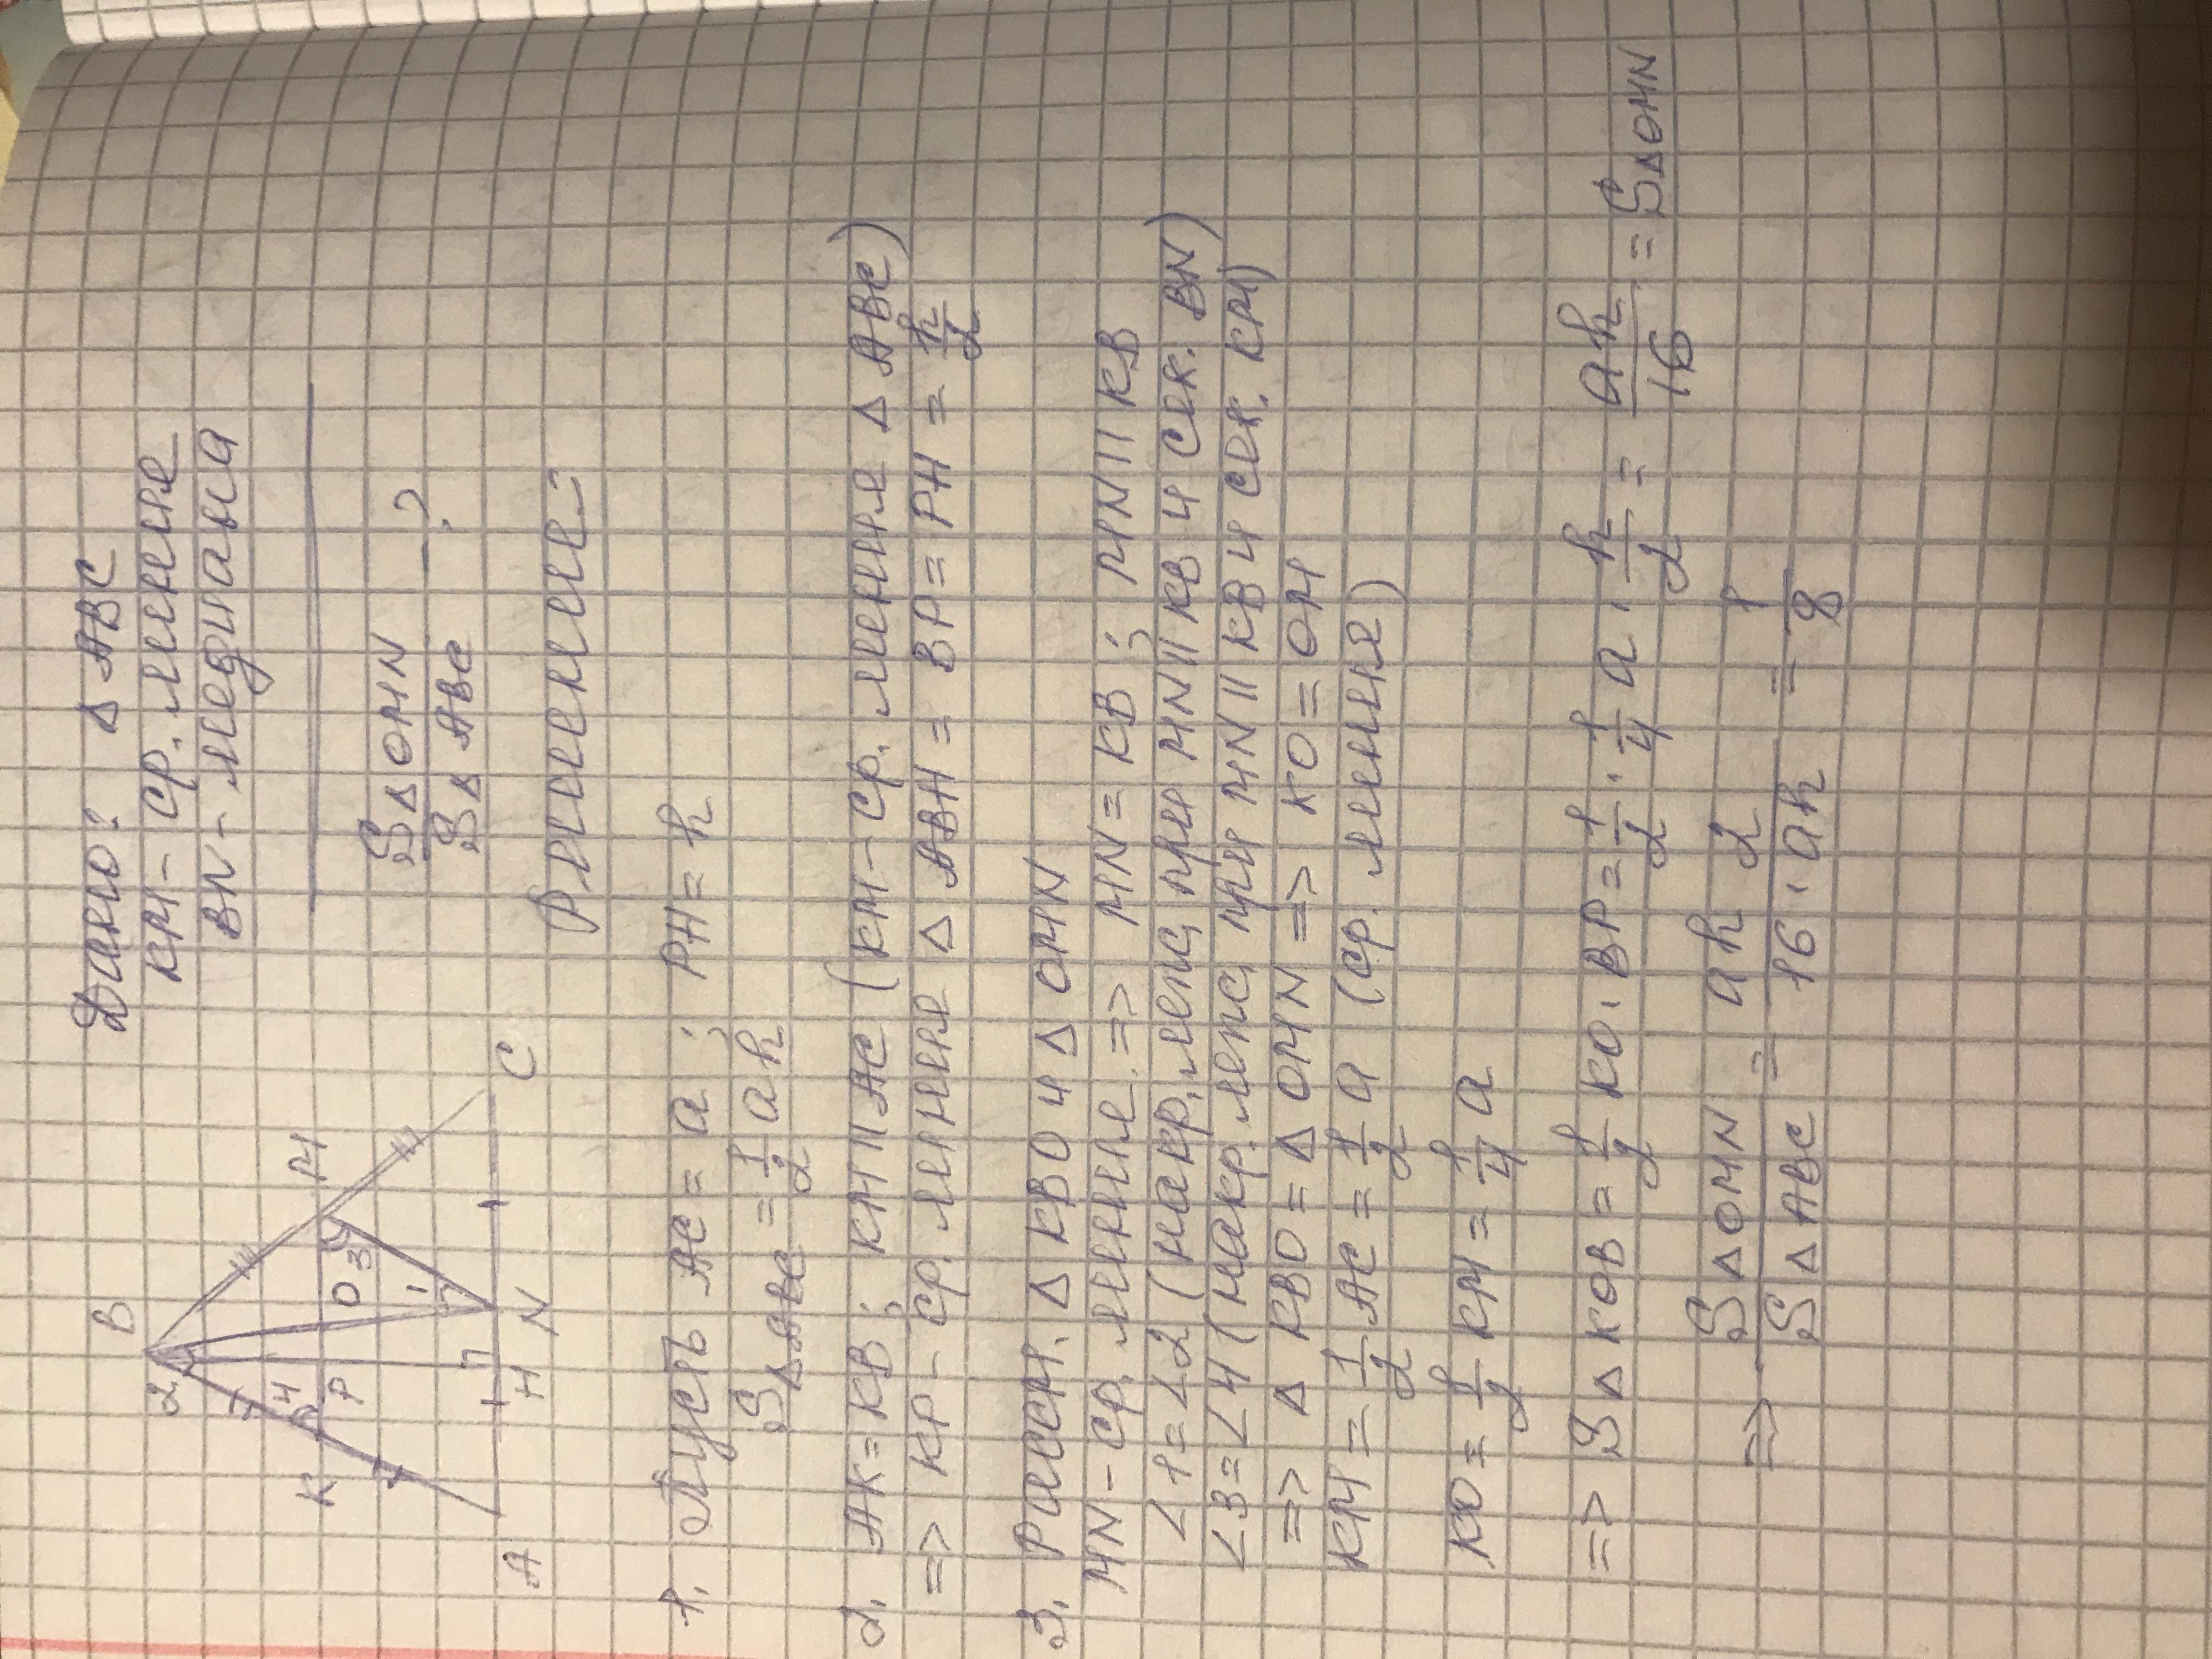 Дано: Δ ABC
KM - ср. линия
BN - медиана
S Δ OMN / S Δ ABC - ?
B
2
K
4
P
O
3
M
1
A
H
N
C
Решение:
1. Пусть AC = a; PH = h
S Δ ABC = 1/2 ah
2. AK = KB; KM II AC (KM - ср. линия Δ ABC)
=> KP - ср. линия Δ ABH = BP = PH = h/2
3. Рассм. Δ KBO и Δ OMN
MN - ср. линия. => MN = KB; MN II KB
∠1 = ∠2 (накр. леж. при MN II KB и сек. BN)
∠3 = ∠4 (накр. леж. при MN II KB и сек. KM)
=> Δ KBO = Δ OMN => KO = OM
KM = 1/2 AC = 1/2 a (ср. линия)
KO = 1/2 KM = 1/4 a
=> S Δ KOB = 1/2 KO · BP = 1/2 · 1/4 a · h/2 = ah/16 = S Δ OMN
=> S Δ OMN / S Δ ABC = ah 2 / 16 · ah = 1/8